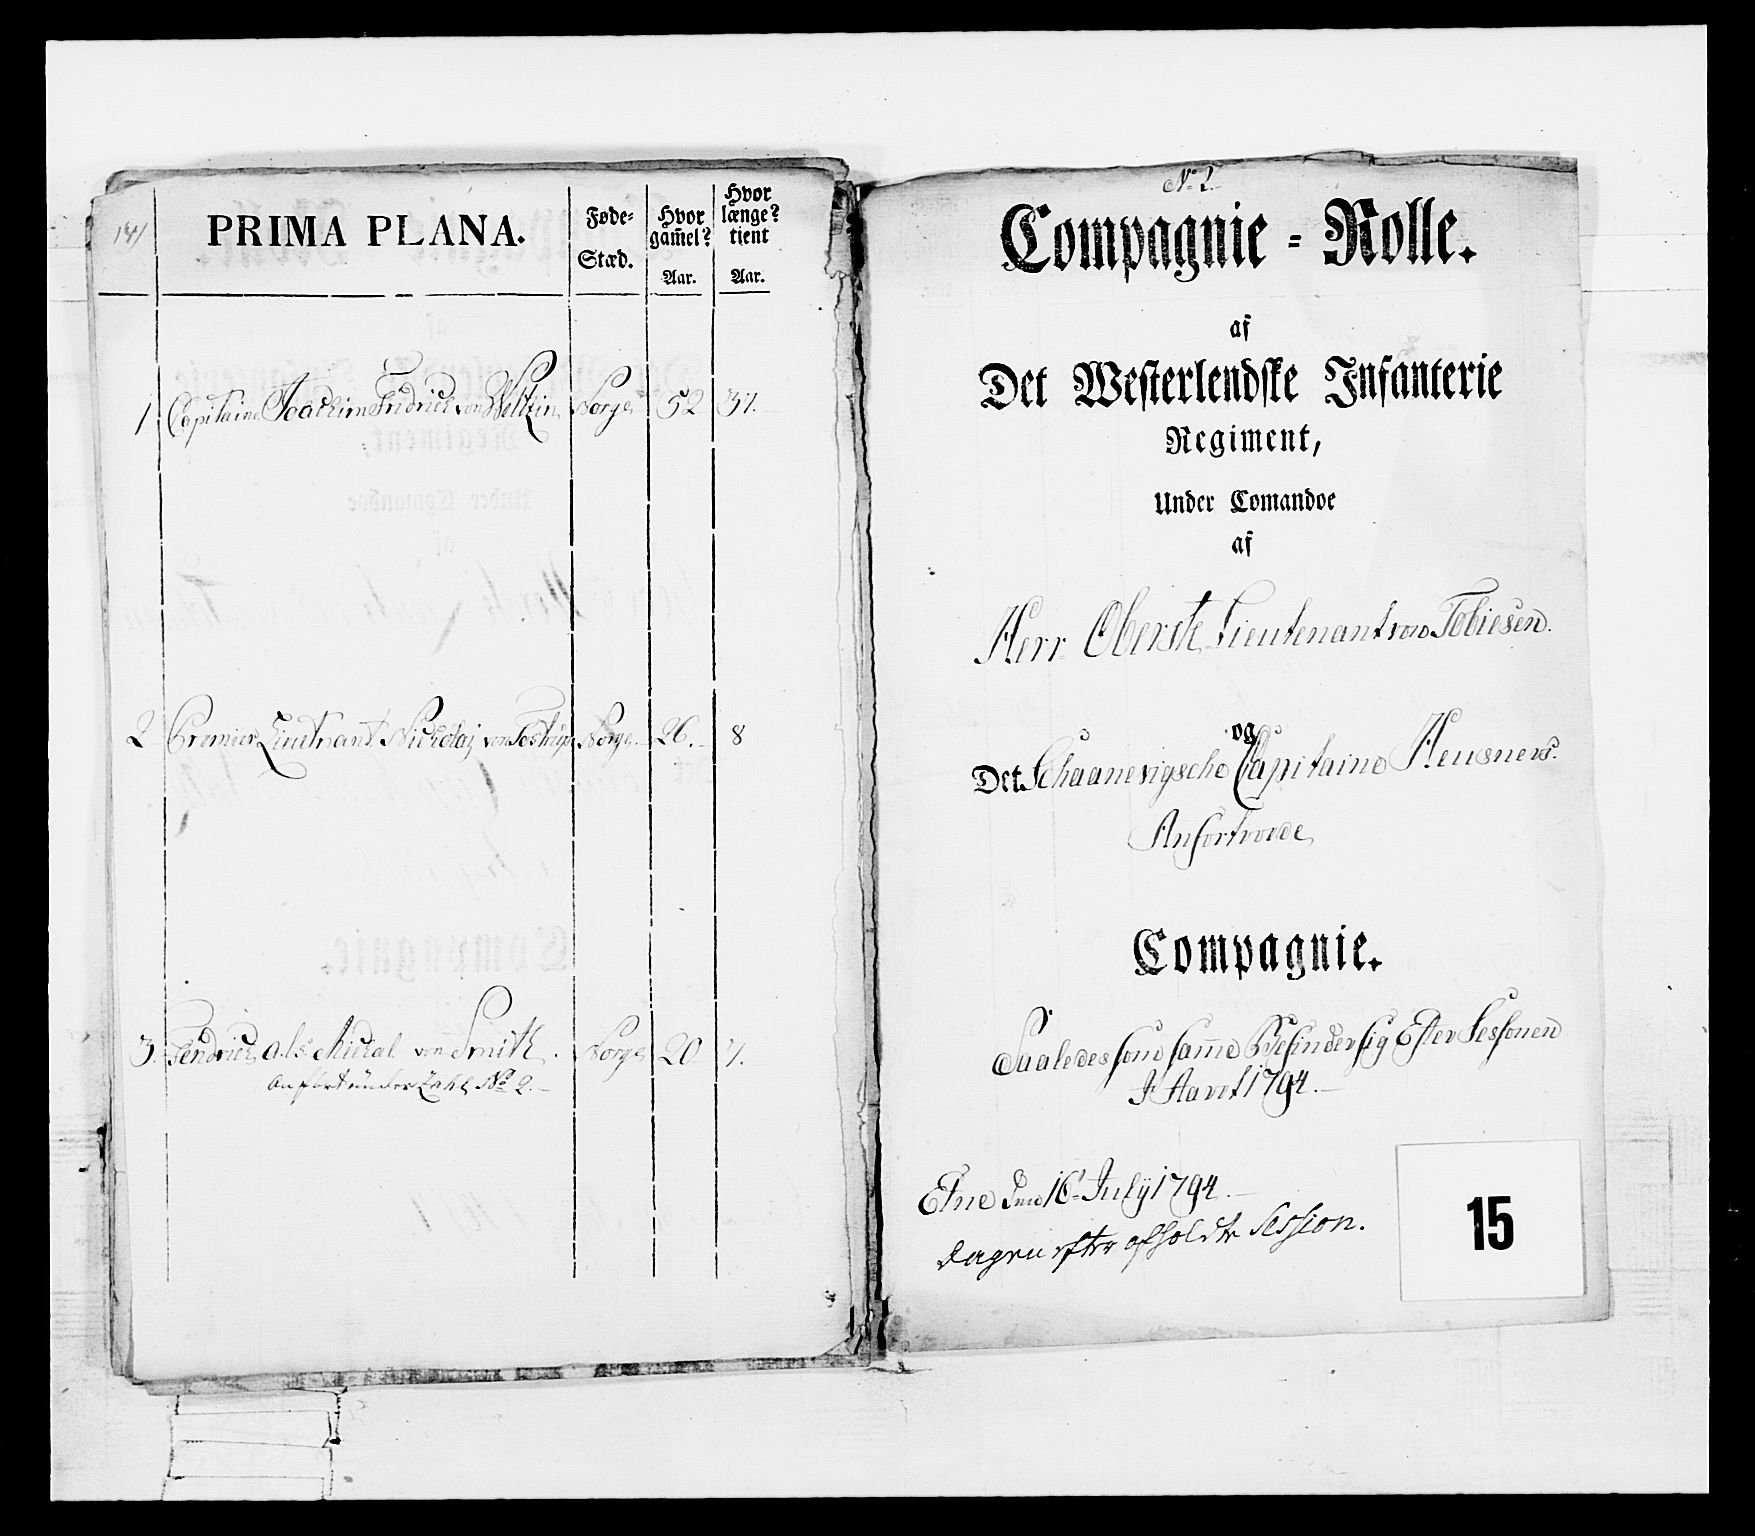 141
PRIMA PLANA.
Føde-
Stæd.
Hvor
gam̃el?
Aar.
Hvor
længe?
tient
Aar.
1 Capitaine Joachim Fridrich von Weltzin Norge 52 37.
2 Premier Lieutnant Nickolaj von Tostrup Norge. 26. 8
3. Fendrich, a.l.s. Mickal von Smith. Norge 20 7.
anført under Zahl No 2.
No 2
Compagnie-Rolle.
af
Det Westerlendske Infanterie
Regiment,
Under Comandoe
af
Herr Oberste Lieutenant von Tobiesen.
og
Det Schaanevigsche Capitaine Heusners.
Anfortroede
Compagnie.
Saaledes som sam̃e Befinder sig Efter Sessionen
I Aaret 1794.
Etne den 16 July 1794.
dagen efter afholdte Session.
15